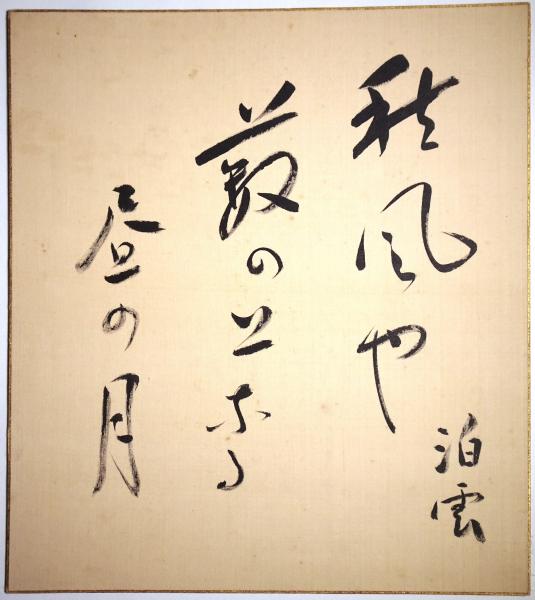 秋風や
藪の上なる
昼の月
泊雲